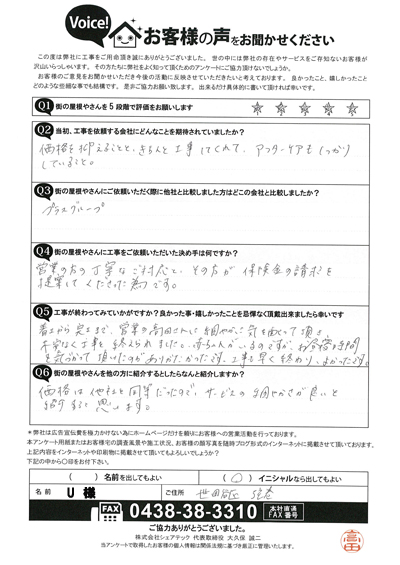 Voice!
お客様の声をお聞かせください
この度は弊社に工事をご用命頂き誠にありがとうございました。世の中には弊社の存在やサービスをご存知ないお客様が
沢山いらっしゃいます。その方たちに弊社をよく知って頂くためのアンケートにご協力頂けないでしょうか。
お客様のご意見をお聞かせいただき今後の活動に反映させていただきたいと考えております。良かったこと、嬉しかったこと
どのような些細な事でも結構です。是非ご協力お願い致します。出来るだけ具体的に書いて頂ければ幸いです。
Q1 街の屋根やさんを5段階で評価をお願いします
Q2 当初、工事を依頼する会社にどんなことを期待されていましたか?
価格を抑えることと、きちんと工事してくれて、アフターケアもしっかり
していること。
Q3 街の屋根やさんにご依頼いただく際に他社と比較しました方はどこの会社と比較しましたか?
プラスグループ
Q4 街の屋根やさんに工事をご依頼いただいた決め手は何ですか?
営業の方の丁寧なご対応と、その方が保険金の請求を
提案してくださった為です。
Q5 工事が終わってみていかがですか?良かった事・嬉しかったことを忌憚なく頂戴出来ましたら幸いです
着工から完工まで、営業の高田さんに細やかに気を配って頂き
不安なく工事を終えられました。赤ちゃんがいるのですが、お昼寝の時間
を気づかって頂いたのがありがたかったです。工事も早く終わり、よかったです。
Q6 街の屋根やさんを他の方に紹介するとしたらなんと紹介しますか?
価格は他社と同等だったので、サービスの細やかさが良いと
紹介すると思います。
*弊社は広告宣伝費を極力かけない為にホームページだけを頼りにお客様への営業活動を行っております。
本アンケート用紙またはお客様宅の調査風景や施工状況、お客様の顔写真を随時ブログ形式のインターネットに掲載させて頂いております。
上記内容をインターネットや印刷物に掲載させて頂いてもよろしいでしょうか?
下記の中から○印をお付下さい。
( )名前を出してもよい (○)イニシャルなら出してもよい
名前 U 様 ご住所 世田谷区
FAX番号 0438-38-3310 本社直通FAX番号
ご協力ありがとうございました。
株式会社シェアテック 代表取締役 大久保 誠二
当アンケートで取得したお客様の個人情報は関係法規に基づき厳正に管理いたします。
高田